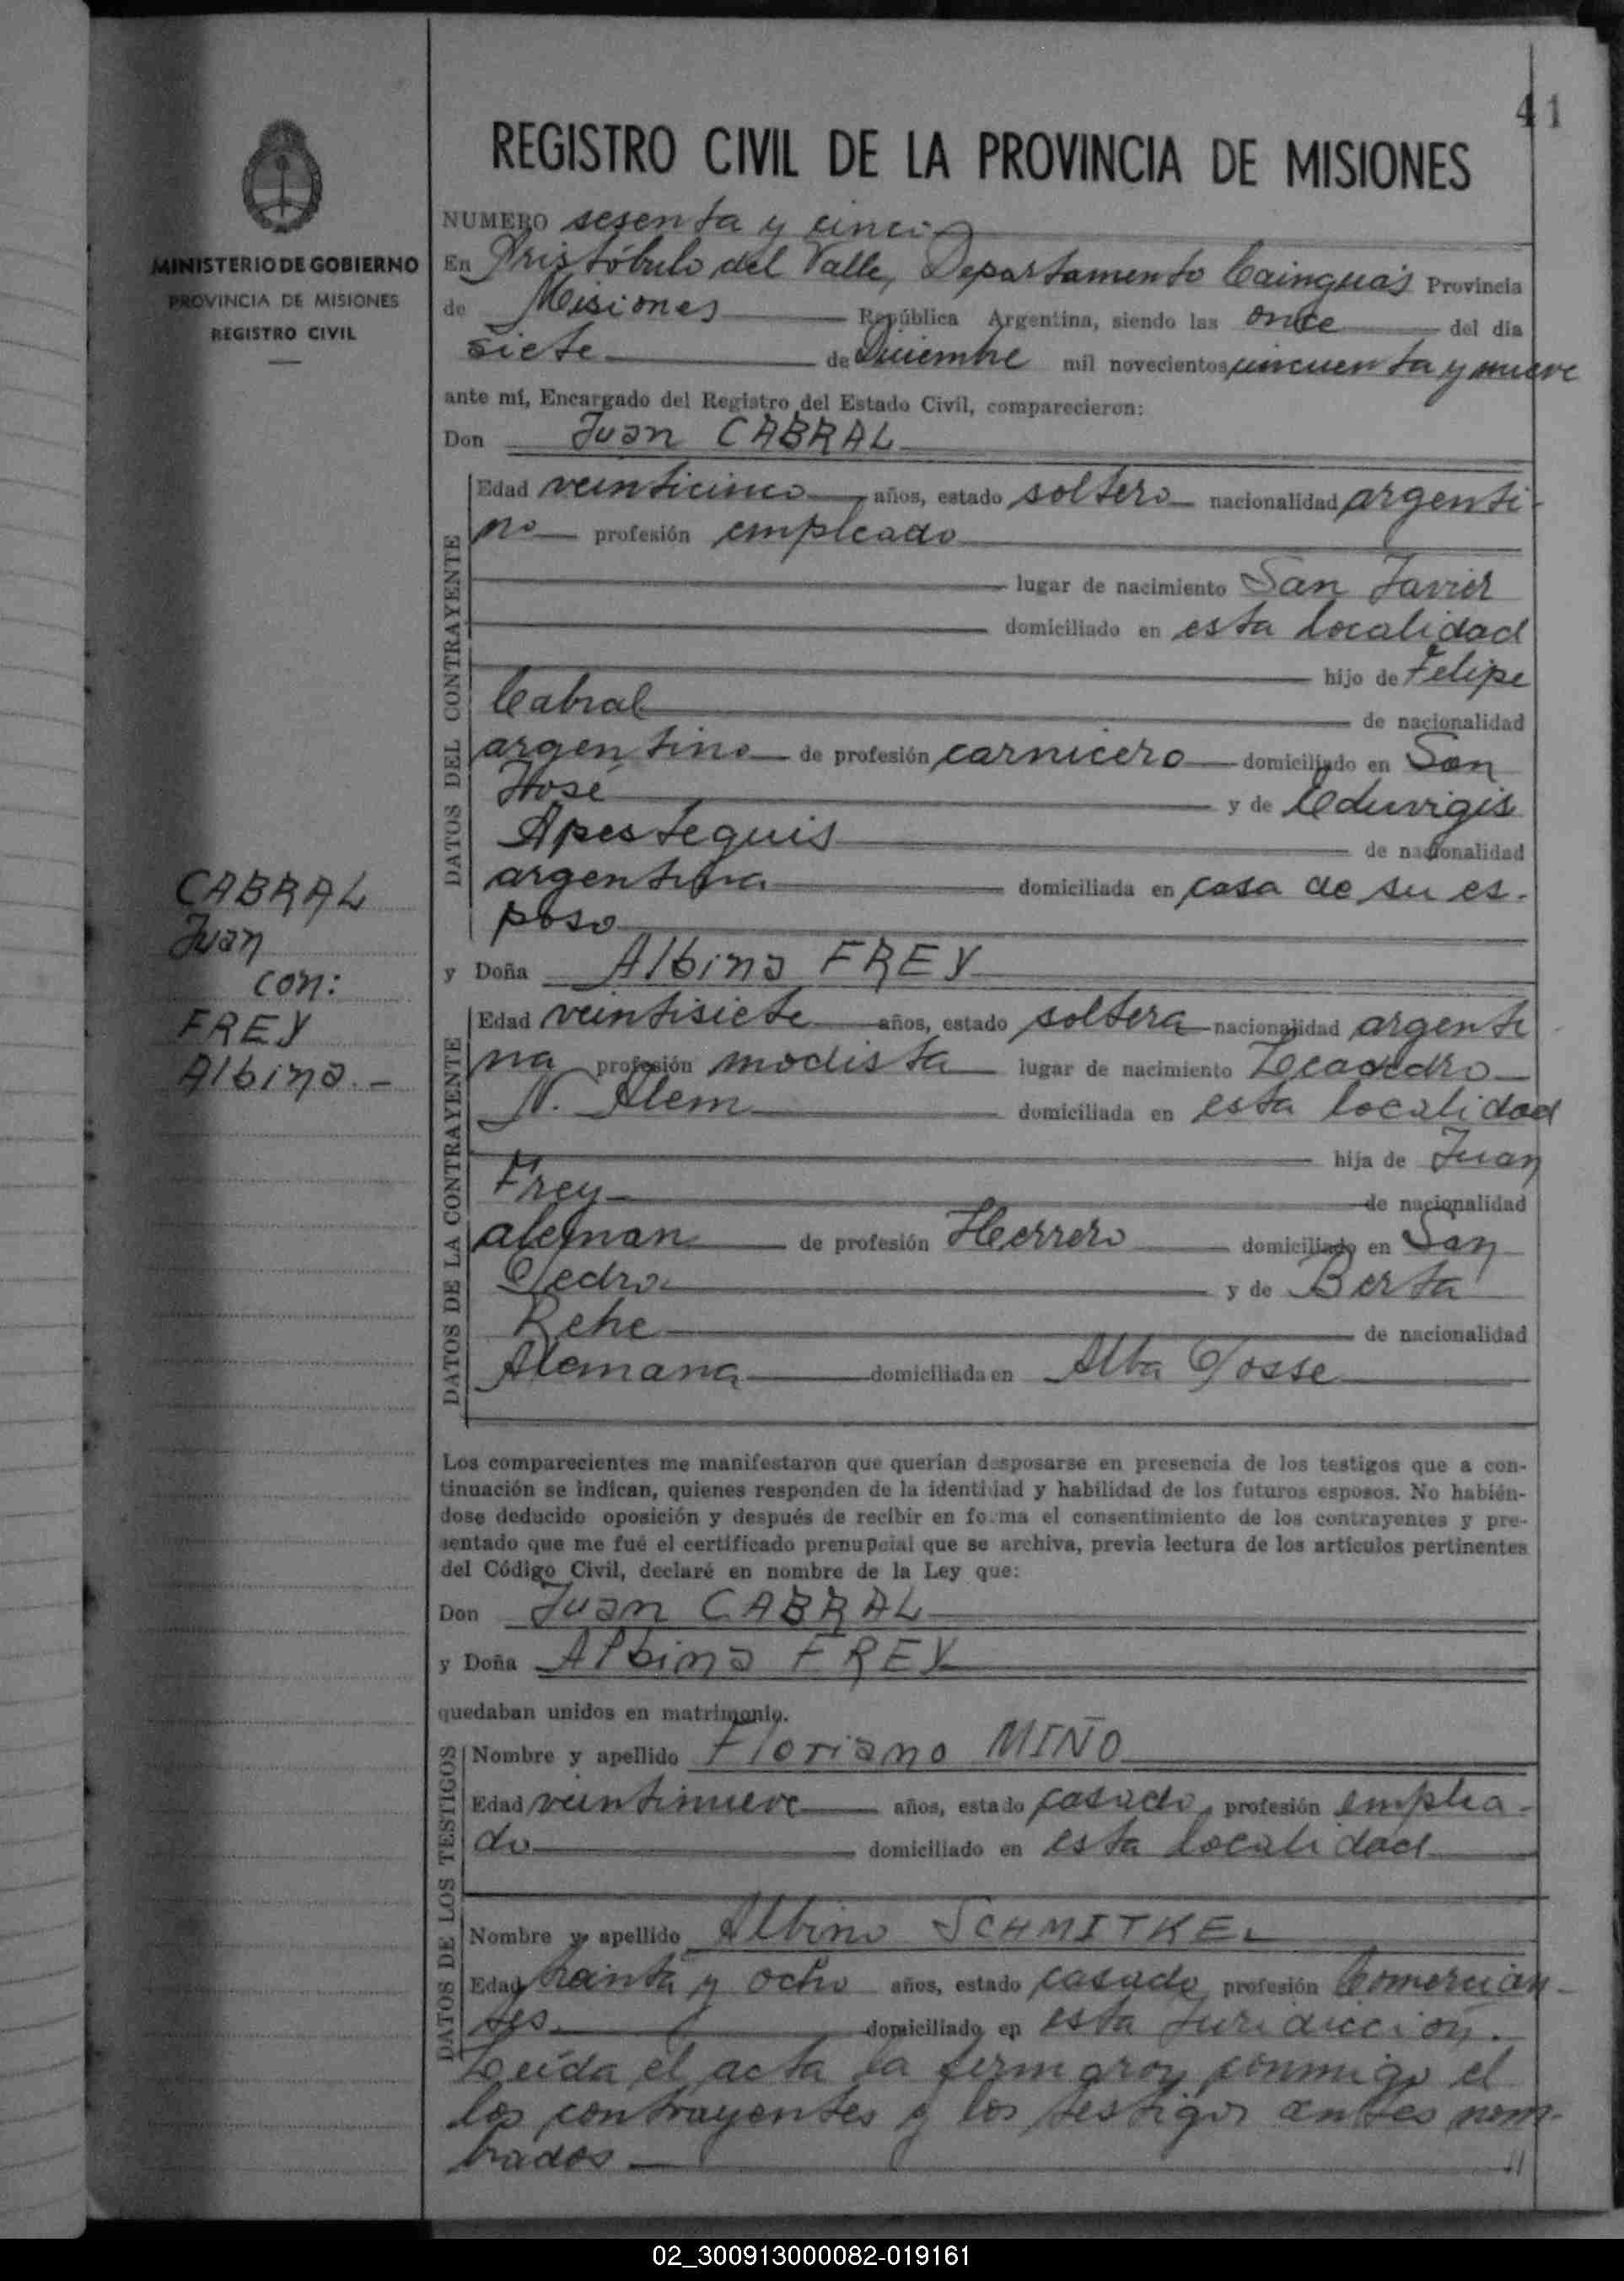 41
REGISTRO CIVIL DE LA PROVINCIA DE MISIONES
MINISTERIO DE GOBIERNO
PROVINCIA DE MISIONES
REGISTRO CIVIL
CABRAL
Juan
con:
FREY
Albina.-
NUMERO sesenta y cinco
En Aristóbulo del Valle, Departamento Cainguás Provincia
de Misiones República Argentina, siendo las once del dia
siete de Diciembre mil novecientos cincuenta y nueve
ante mí, Encargado del Registro del Estado Civil, comparecieron:
Don Juan CABRAL
DATOS DEL CONTRAYENTE
Edad veinticinco años, estado soltero nacionalidad argenti-
no profesión empleado
lugar de nacimiento San Javier
domiciliado en esta localidad
hijo de Felipe
Cabral de nacionalidad
argentino de profesión carnicero domiciliado en San
José y de Eduvigis
Apesteguis de nacionalidad
argentina domiciliada en casa de su es-
poso
y Doña Albina FREY
DATOS DE LA CONTRAYENTE
Edad veintisiete años, estado soltera nacionalidad argenti
na profesión modista lugar de nacimiento Leandro
N. Alem domiciliada en esta localidad
hija de Juan
Frey de nacionalidad
aleman de profesión Herrero domiciliado en San
Pedro y de Berta
Rehe de nacionalidad
Alemana domiciliada en Alba Posse
Los comparecientes me manifestaron que querían desposarse en presencia de los testigos que a con-
tinuación se indican, quienes responden de la identidad y habilidad de los futuros esposos. No habién-
dose deducido oposición y después de recibir en forma el consentimiento de los contrayentes y pre-
sentado que me fué el certificado prenupcial que se archiva, previa lectura de los artículos pertinentes
del Código Civil, declaré en nombre de la Ley que:
Don Juan CABRAL
y Doña Albina FREY
quedaban unidos en matrimonio.
DATOS DE LOS TESTIGOS
Nombre y apellido Floriano MIÑO
Edad veintinueve años, estado casado, profesión emplea-
do domiciliado en esta localidad
Nombre y apellido Albino SCHMITKEL
Edad treinta y ocho años, estado casado, profesión Comercian-
tes domiciliado en esta Juridiccion.
Leída el acta la firmaron conmigo el
los contrayentes y los testigos antes nom-
brados.-
//
02_300913000082-019161